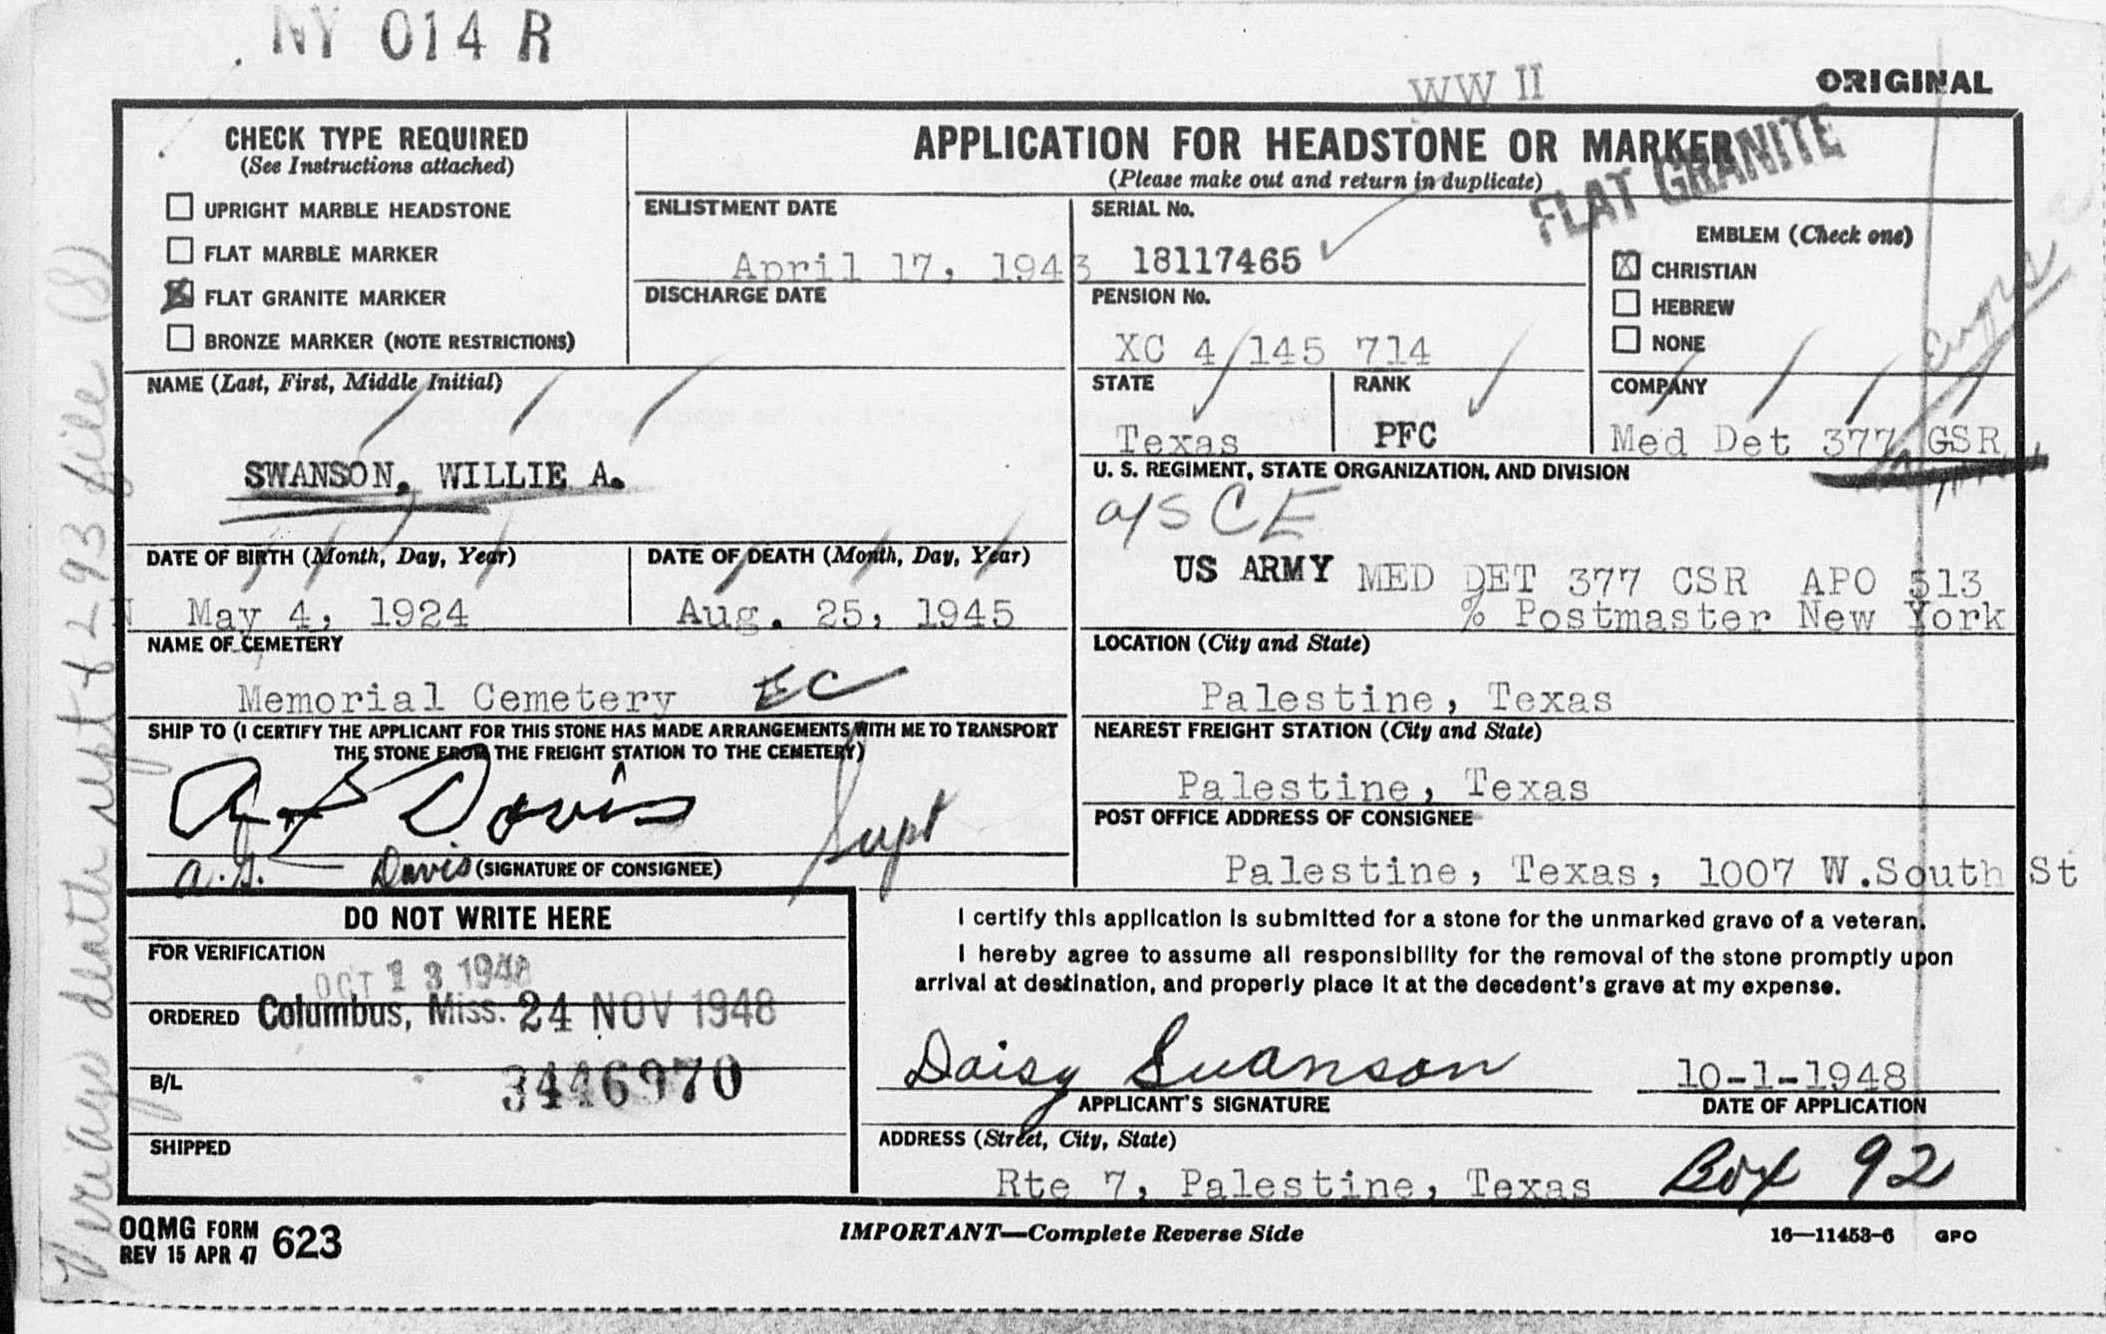 NY 014 R
WW II
ORIGINAL
CHECK TYPE REQUIRED
(See Instructions attached)
UPRIGHT MARBLE HEADSTONE
FLAT MARBLE MARKER
X FLAT GRANITE MARKER
BRONZE MARKER (NOTE RESTRICTIONS)
APPLICATION FOR HEADSTONE OR MARKER
(Please make out and return in duplicate)
FLAT GRANITE
ENLISTMENT DATE
April 17, 1943
DISCHARGE DATE
SERIAL No.
18117465
PENSION No.
XC 4/145 714
EMBLEM (Check one)
X CHRISTIAN
HEBREW
NONE
Engrs
NAME (Last, First, Middle Initial)
SWANSON, WILLIE A.
STATE
Texas
RANK
PFC
COMPANY
Med Det 377 GSR
U. S. REGIMENT, STATE ORGANIZATION, AND DIVISION
a/s CE
US ARMY MED DET 377 CSR APO 513
% Postmaster New York
DATE OF BIRTH (Month, Day, Year)
May 4, 1924
DATE OF DEATH (Month, Day, Year)
Aug. 25, 1945
NAME OF CEMETERY
Memorial Cemetery EC
LOCATION (City and State)
Palestine, Texas
SHIP TO (I CERTIFY THE APPLICANT FOR THIS STONE HAS MADE ARRANGEMENTS WITH ME TO TRANSPORT
THE STONE FROM THE FREIGHT STATION TO THE CEMETERY)
Davis Supt
A.S. Davis (SIGNATURE OF CONSIGNEE)
NEAREST FREIGHT STATION (City and State)
Palestine, Texas
POST OFFICE ADDRESS OF CONSIGNEE
Palestine, Texas, 1007 W.South St
DO NOT WRITE HERE
FOR VERIFICATION
OCT 13 1948
ORDERED Columbus, Miss. 24 NOV 1948
B/L
3446970
SHIPPED
I certify this application is submitted for a stone for the unmarked grave of a veteran.
I hereby agree to assume all responsibility for the removal of the stone promptly upon
arrival at destination, and properly place it at the decedent's grave at my expense.
Daisy Swanson
APPLICANT'S SIGNATURE
10-1-1948
DATE OF APPLICATION
ADDRESS (Street, City, State)
Rte 7, Palestine, Texas Box 92
OQMG FORM 623
REV 15 APR 47
IMPORTANT—Complete Reverse Side
16—11453-6 GPO
death rept + 293 file (S)